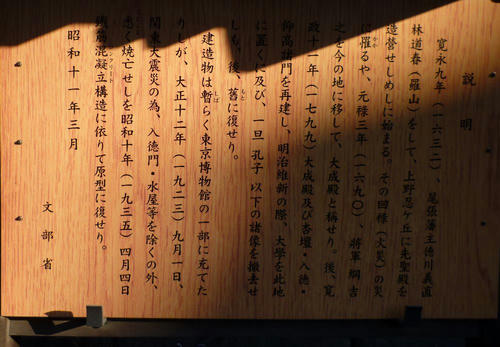 説明
寛永九年（一六三二）、尾張藩主徳川義直
林道春（羅山）をして、上野忍ヶ丘に先聖殿を
造營せしめしに始まる。その回祿（火災）の災
に罹るや、元禄三年（一六九〇）、将軍綱吉
之を今の地に移して、大成殿と稱せり。後、寛
政十一年（一七九九）大成殿及び杏壇・入徳・
仰高諸門を再建し、明治維新の際、大學を此地
に置くに及び、一旦孔子以下の諸像を撤去せ
しも、後、舊に復せり。
建造物は暫らく東京博物館の一部に充てた
りしが、大正十二年（一九二三）九月一日、
関東大震災の為、入徳門・水屋等を除くの外、
悉く焼亡せしを昭和十年（一九三五）四月四日
混凝立構造に依りて原型に復せり。
昭和十一年三月
文部省